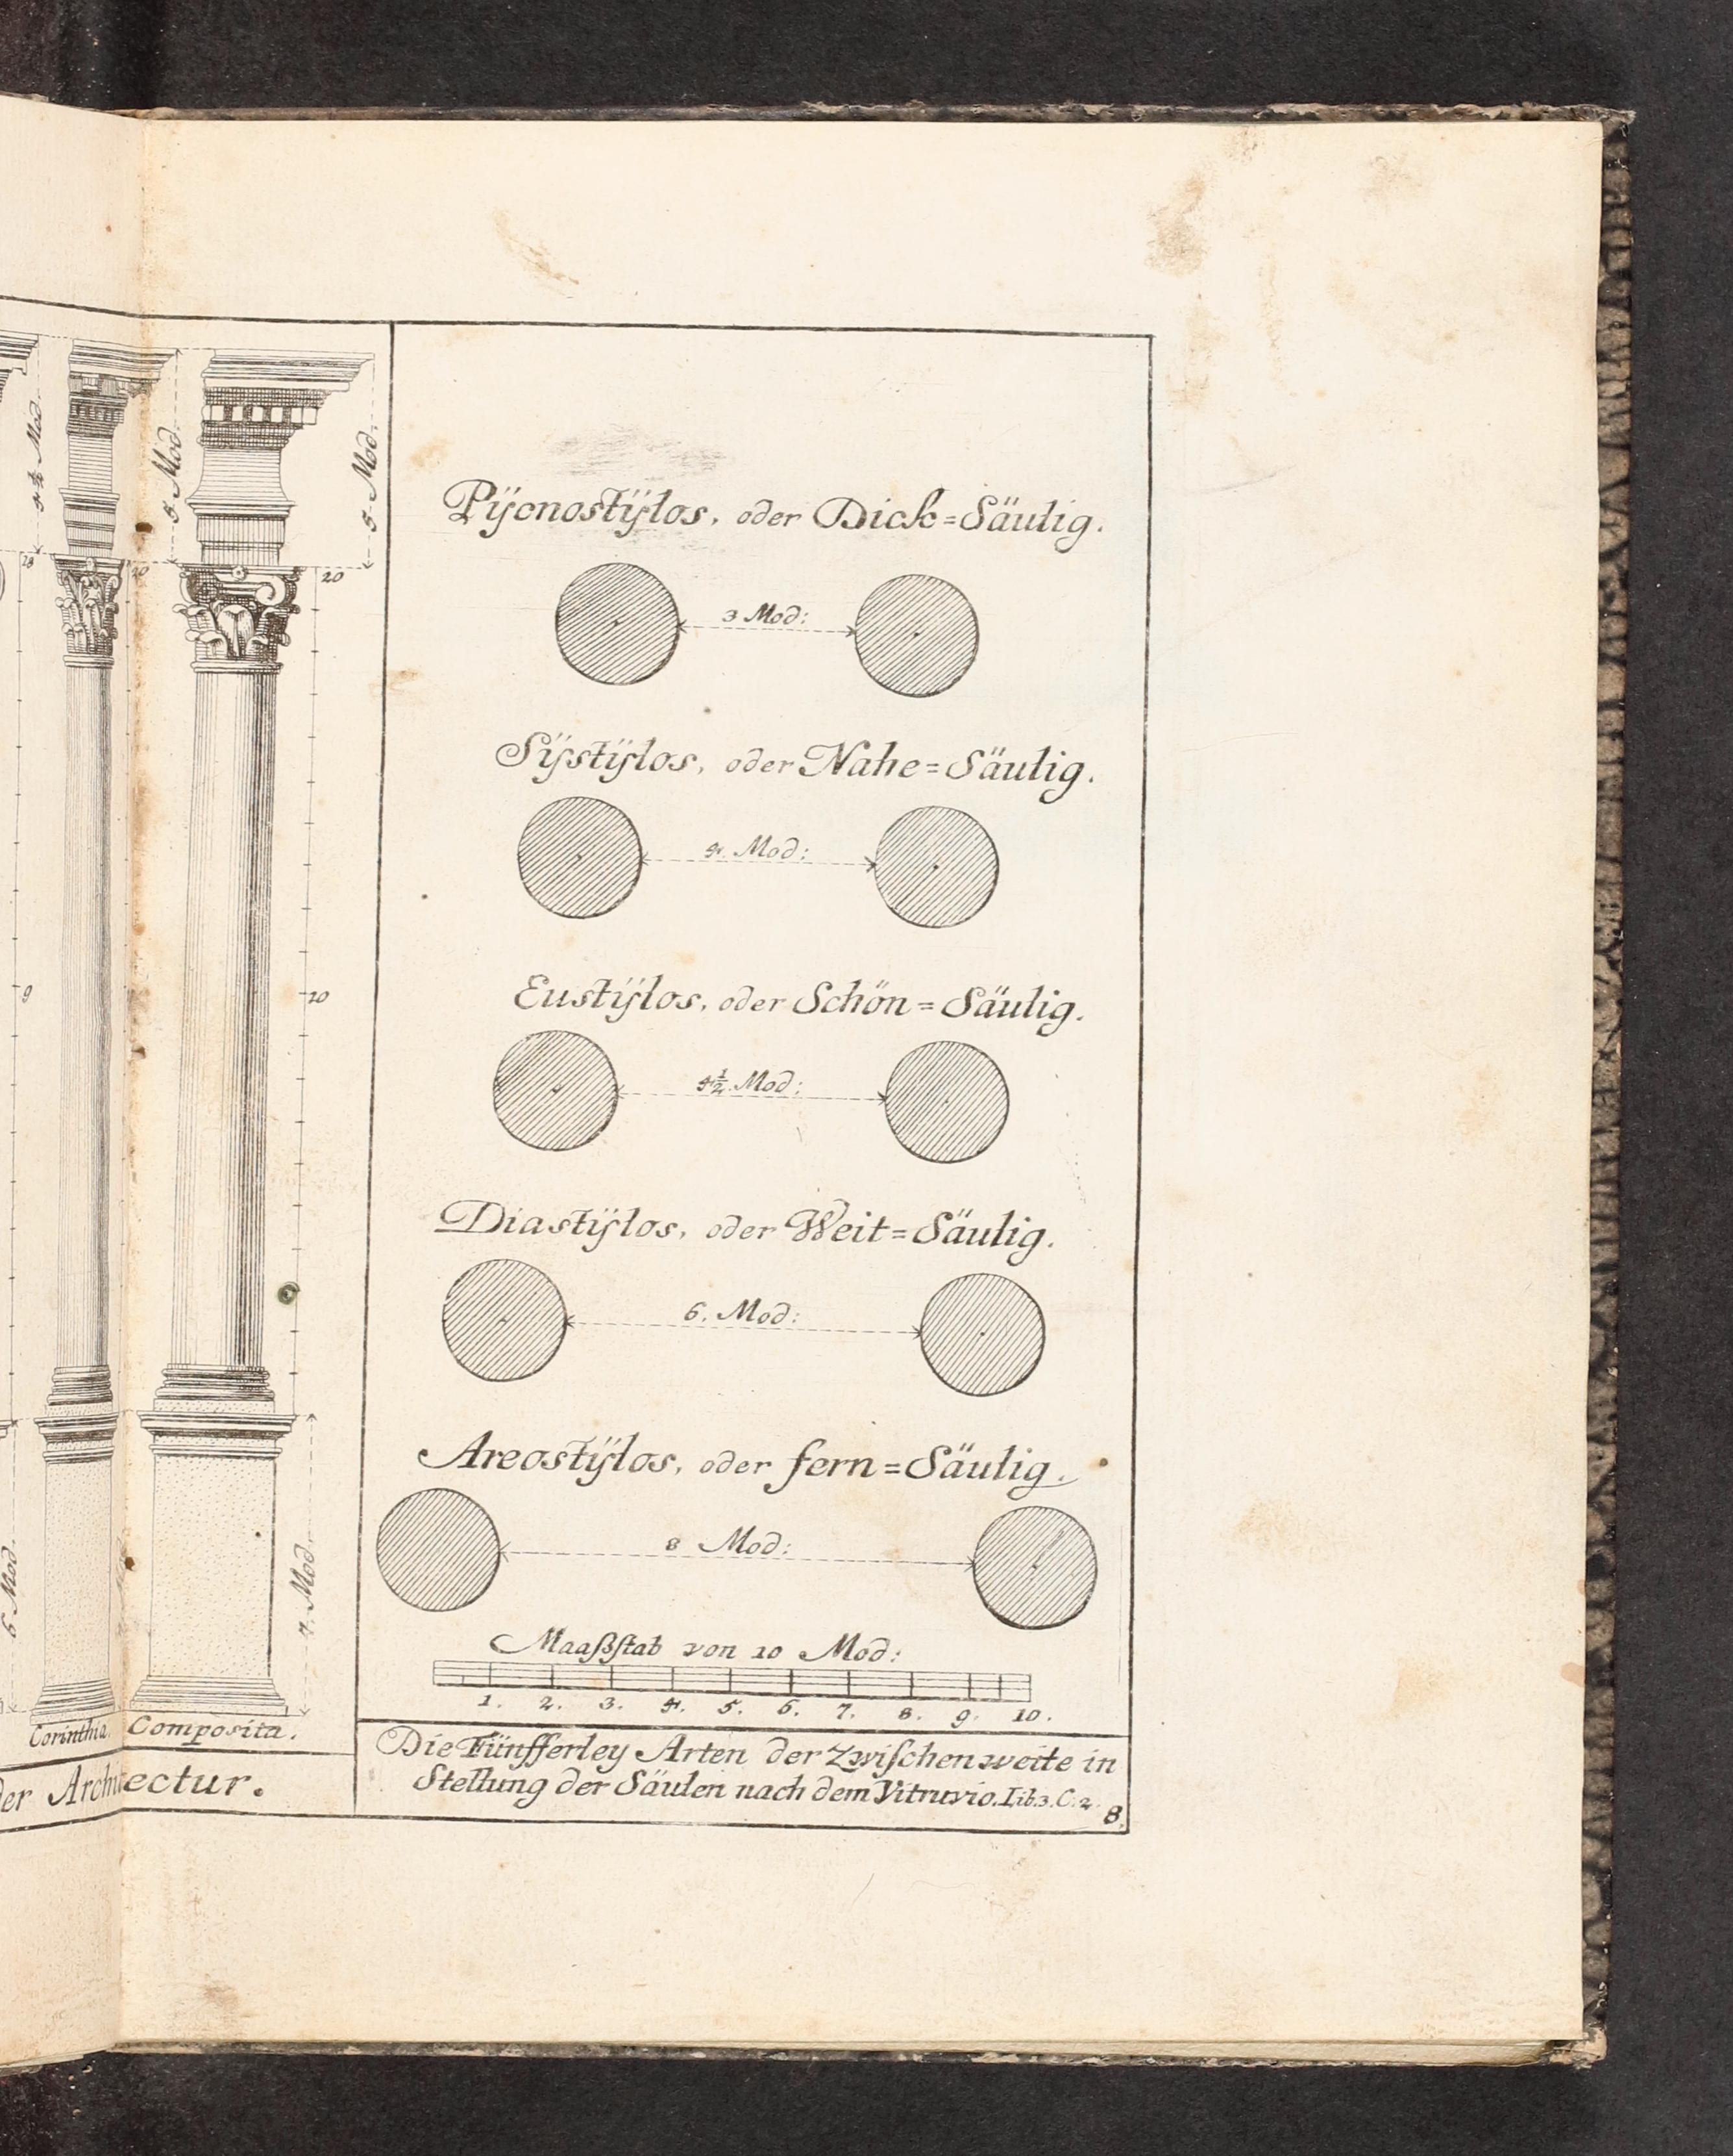 4½ Mod.
5 Mod.
5 Mod.
18
20
20
9
10
6 Mod.
7. Mod.
Corinthia.
Composita.
der Architectur.
Pÿcnostÿlos, oder Dick=Säulig.
3 Mod:
Sÿstÿlos, oder Nahe=Säulig.
4. Mod:
Eustÿlos, oder Schön=Säulig.
4½. Mod:
Diastÿlos, oder Weit=Säulig.
6. Mod:
Areostÿlos, oder fern=Säulig.
8 Mod:
Maaßſtab von 10 Mod:
1. 2. 3. 4. 5. 6. 7. 8. 9. 10.
Die Fünfferley Arten der Zwiſchenweite in
Stellung der Säulen nach dem Vitruvio. Lib.3. C.2.
8.